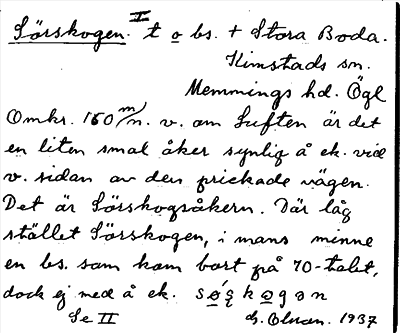 Sörskogen. II t o bs. + Stora Boda.
Kimstads sn.
Memmings hd. Ögl
Omkr. 150 m/n. v. om Luften är det
en liten smal åker synlig å ek. vid
v. sidan av den prickade vägen.
Det är Sörskogsåkern. Där låg
stället Sörskogen, i mans minne
en bs. som kom bort på 70-talet,
dock ej med å ek.
Se II
1937